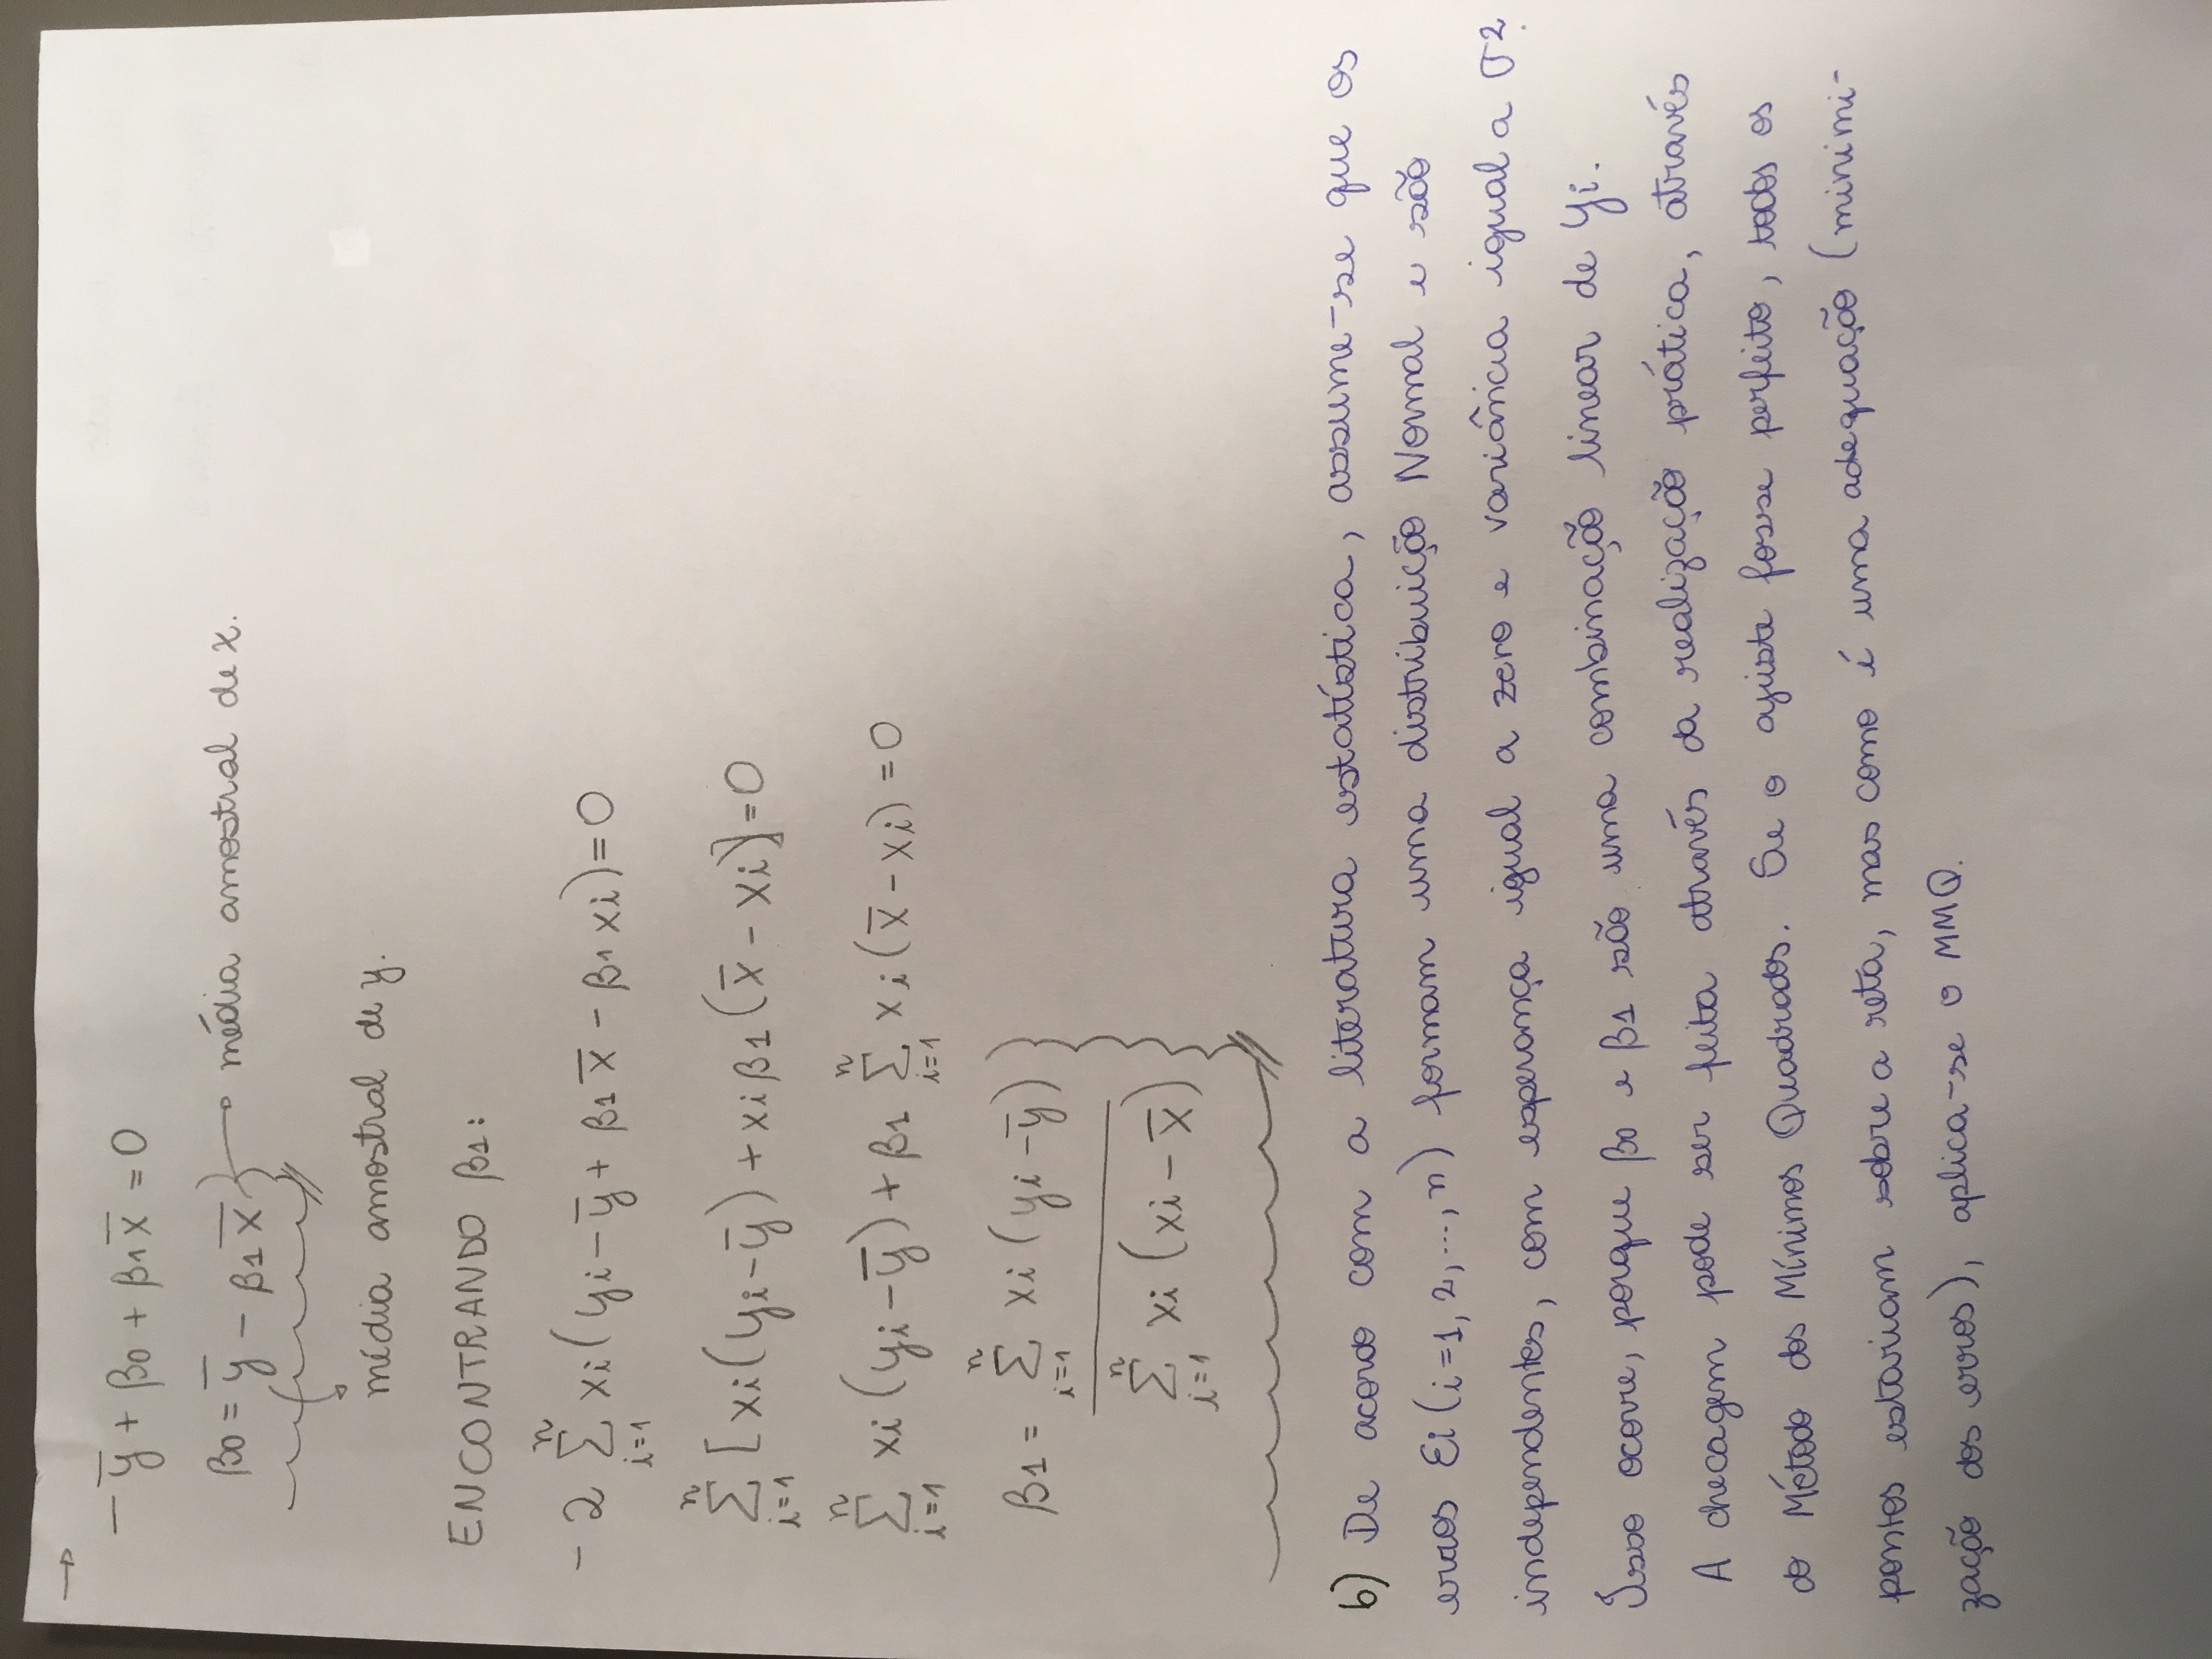 →
- ȳ + β0 + β1 x̄ = 0
β0 = ȳ - β1 x̄ } → média amostral de x.
média amostral de y.
ENCONTRANDO β1:
-2 Σ_{i=1}^{n} xi (yi - ȳ + β1 x̄ - β1 xi) = 0
Σ_{i=1}^{n} [xi (yi - ȳ) + xi β1 (x̄ - xi)] = 0
Σ_{i=1}^{n} xi (yi - ȳ) + β1 Σ_{i=1}^{n} xi (x̄ - xi) = 0
β1 = Σ_{i=1}^{n} xi (yi - ȳ)
Σ_{i=1}^{n} xi (xi - x̄)
b) De acordo com a literatura estatística, assume-se que os
erros Ei (i=1, 2, ..., n) formam uma distribuição Normal e são
independentes, com esperança igual a zero e variância igual a σ².
Isso ocorre, porque β0 e β1 são uma combinação linear de Yi.
A checagem pode ser feita através da realização prática, através
do Método dos Mínimos Quadrados. Se o ajuste fosse perfeito, todos os
pontos estariam sobre a reta, mas como é uma adequação (minimi-
zação dos erros), aplica-se o MMQ.